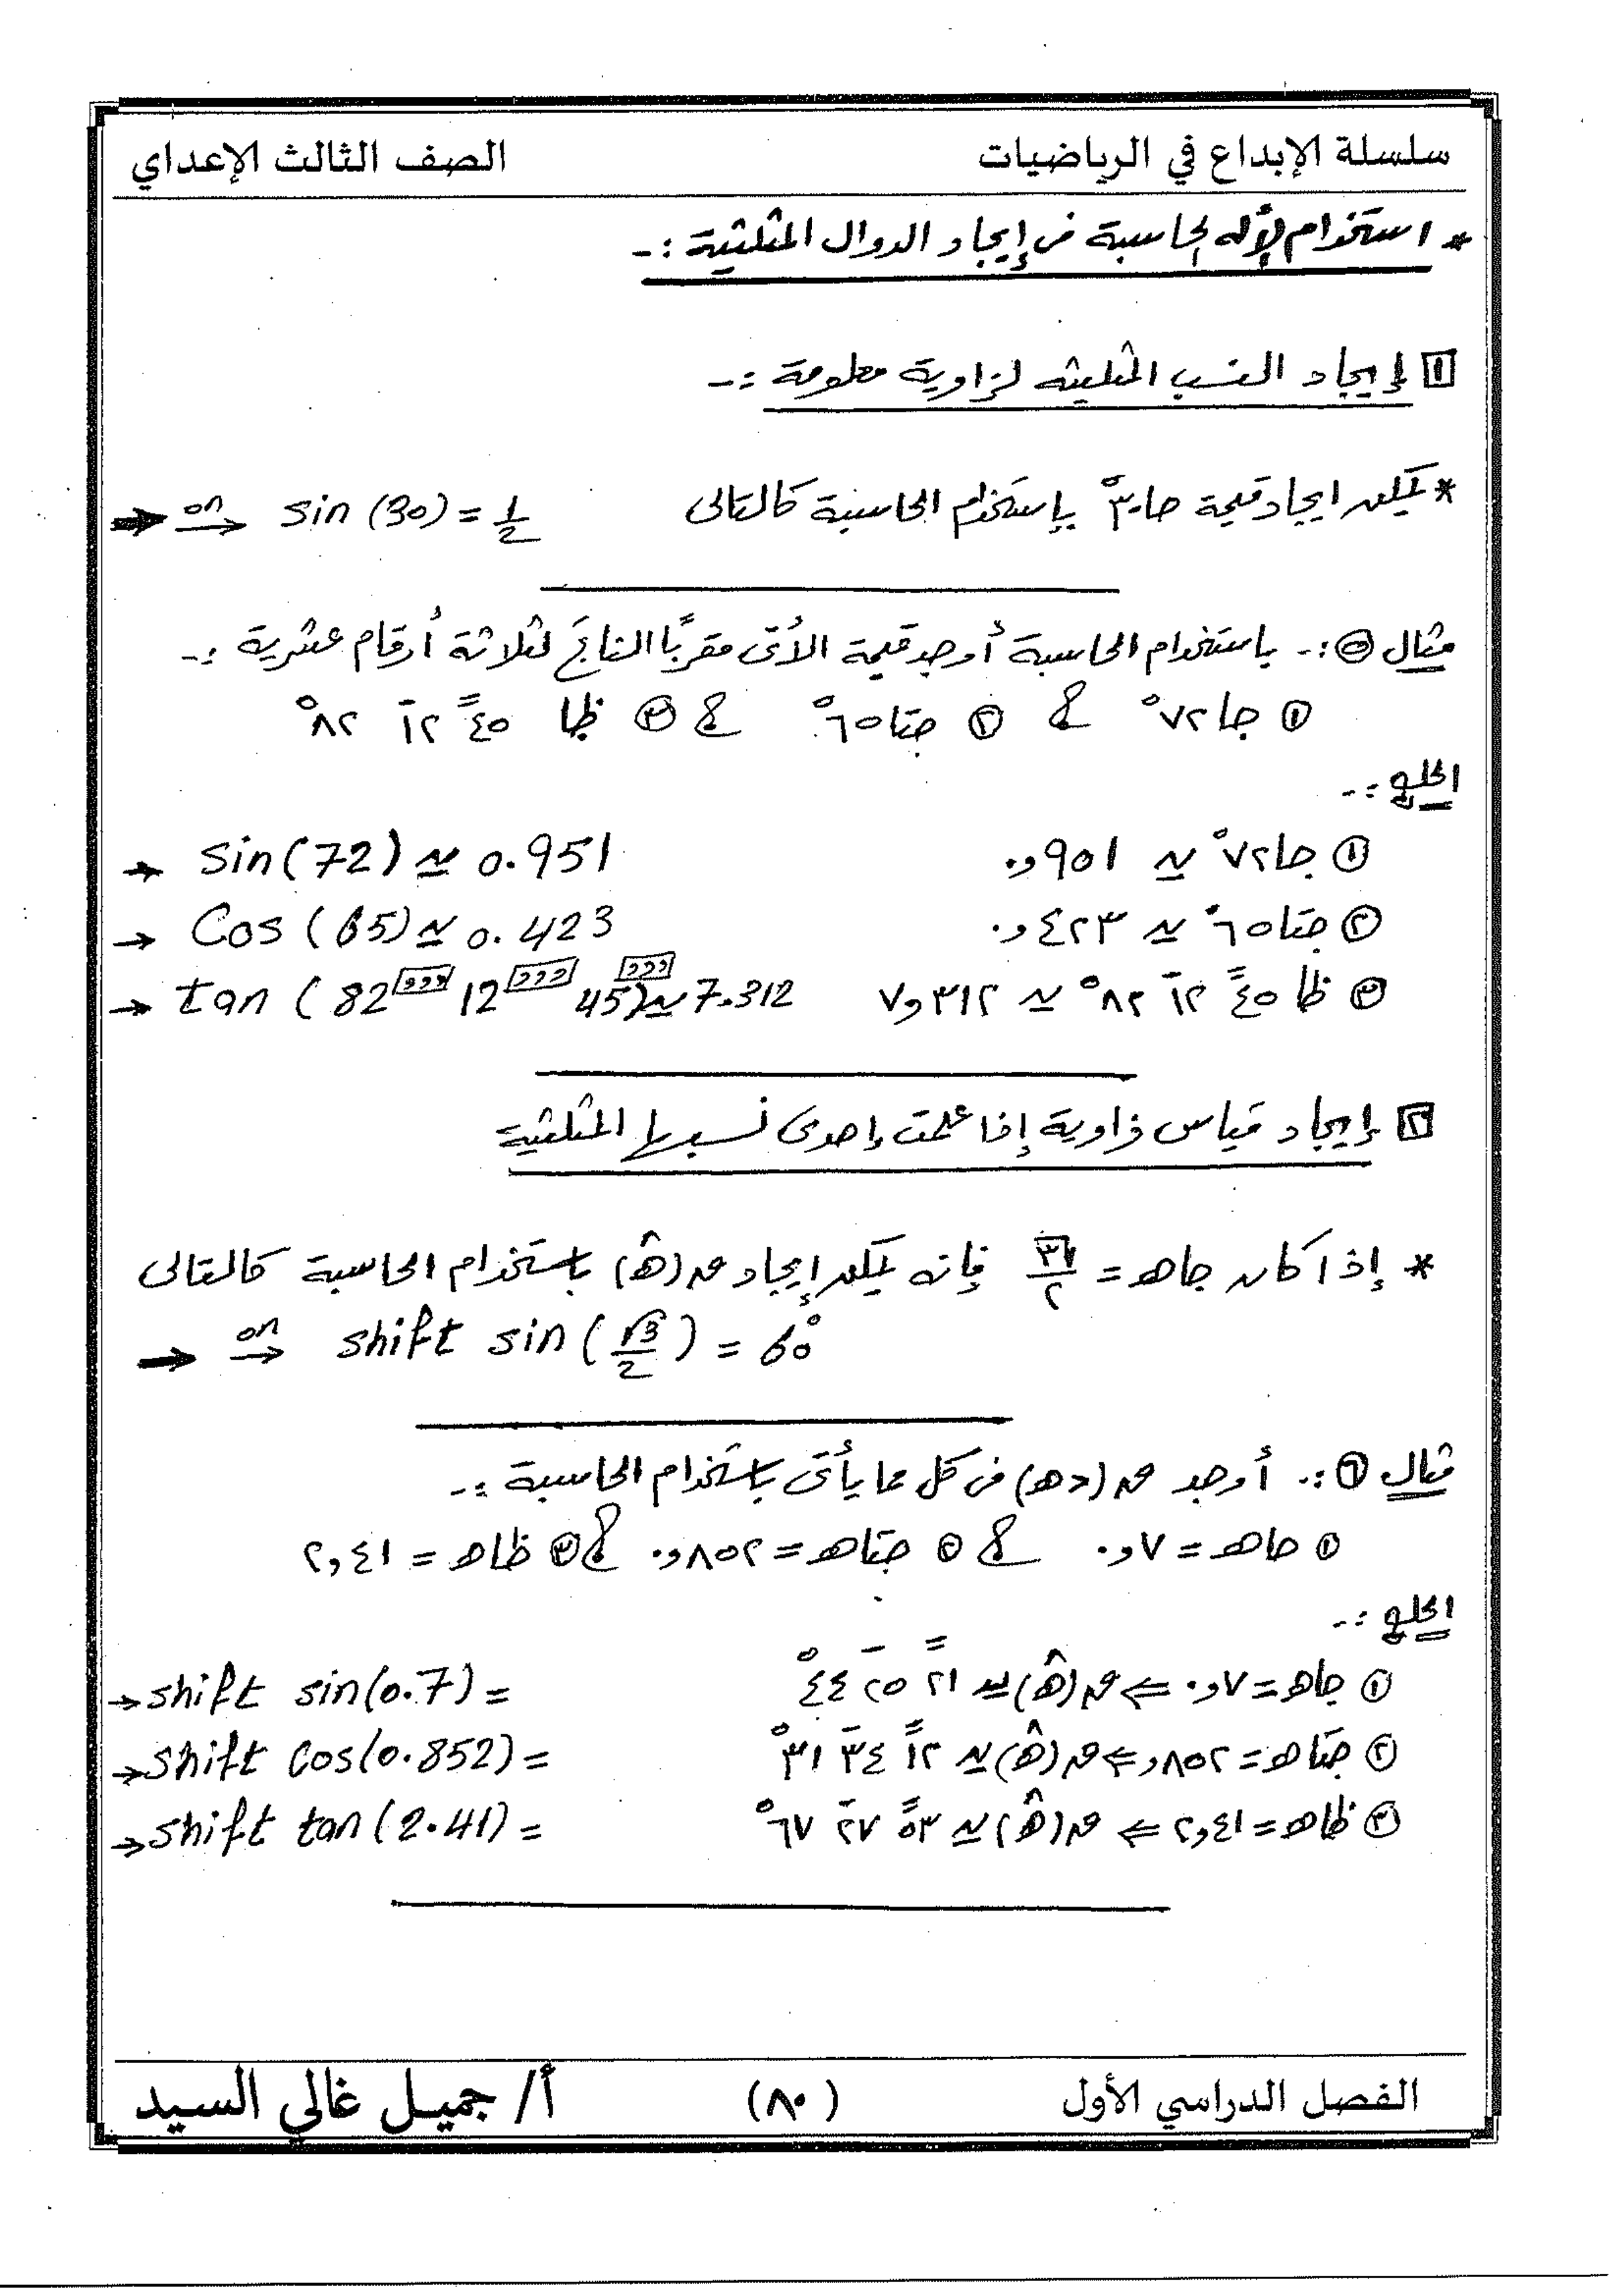 سلسلة الإبداع في الرياضيات الصف الثالث الإعداي
* استخدام الأله الحاسبة فى إيجاد الدوال المثلثية :-
١ إيجاد النسب المثلثيه لزاوية معلومة :-
* يمكن ايجاد قيمة جا ٣٠° بإستخدام الحاسبة كالتالى → on → sin (30) = 1/2
مثال ٥ :- باستخدام الحاسبة أوجد قيمة الأتى مقربًا الناتج لثلاثة أرقام عشرية :-
① جا ٧٢° ، ② جتا ٦٥° ، ③ ظا ٤٥ً ١٢َ ٨٢°
الحل :-
① جا ٧٢° ≃ ٠,٩٥١ → Sin(72) ≃ 0.951
② جتا ٦٥° ≃ ٠,٤٢٣ → Cos (65) ≃ 0.423
③ ظا ٤٥ً ١٢َ ٨٢° ≃ ٧,٣١٢ → tan ( 82 ,,, 12 ,,, 45 ,,, ) ≃ 7.312
٢ إيجاد قياس زاوية إذا علمت إحدى نسبها المثلثية
* إذا كان جاهـ = √٣/٢ فإنه يمكن إيجاد ق(هـ) باستخدام الحاسبة كالتالى
→ on → shift sin ( √3/2 ) = 60°
مثال ٦ :- أوجد ق (دهـ) فى كل مما يأتى باستخدام الحاسبة :-
① جاهـ = ٠,٧ ، ② جتاهـ = ٠,٨٥٢ ، ③ ظاهـ = ٢,٤١
الحل :-
① جاهـ = ٠,٧ ⇐ ق(هـ) ≃ ٢١ً ٢٥َ ٤٤° → shift sin(0.7) =
② جتاهـ = ٠,٨٥٢ ⇐ ق(هـ) ≃ ١٢ً ٣٤َ ٣١° → shift Cos(0.852) =
③ ظاهـ = ٢,٤١ ⇐ ق(هـ) ≃ ٥٣ً ٢٧َ ٦٧° → shift tan(2.41) =
الفصل الدراسي الأول (٨٠) أ/ جميل غالي السيد